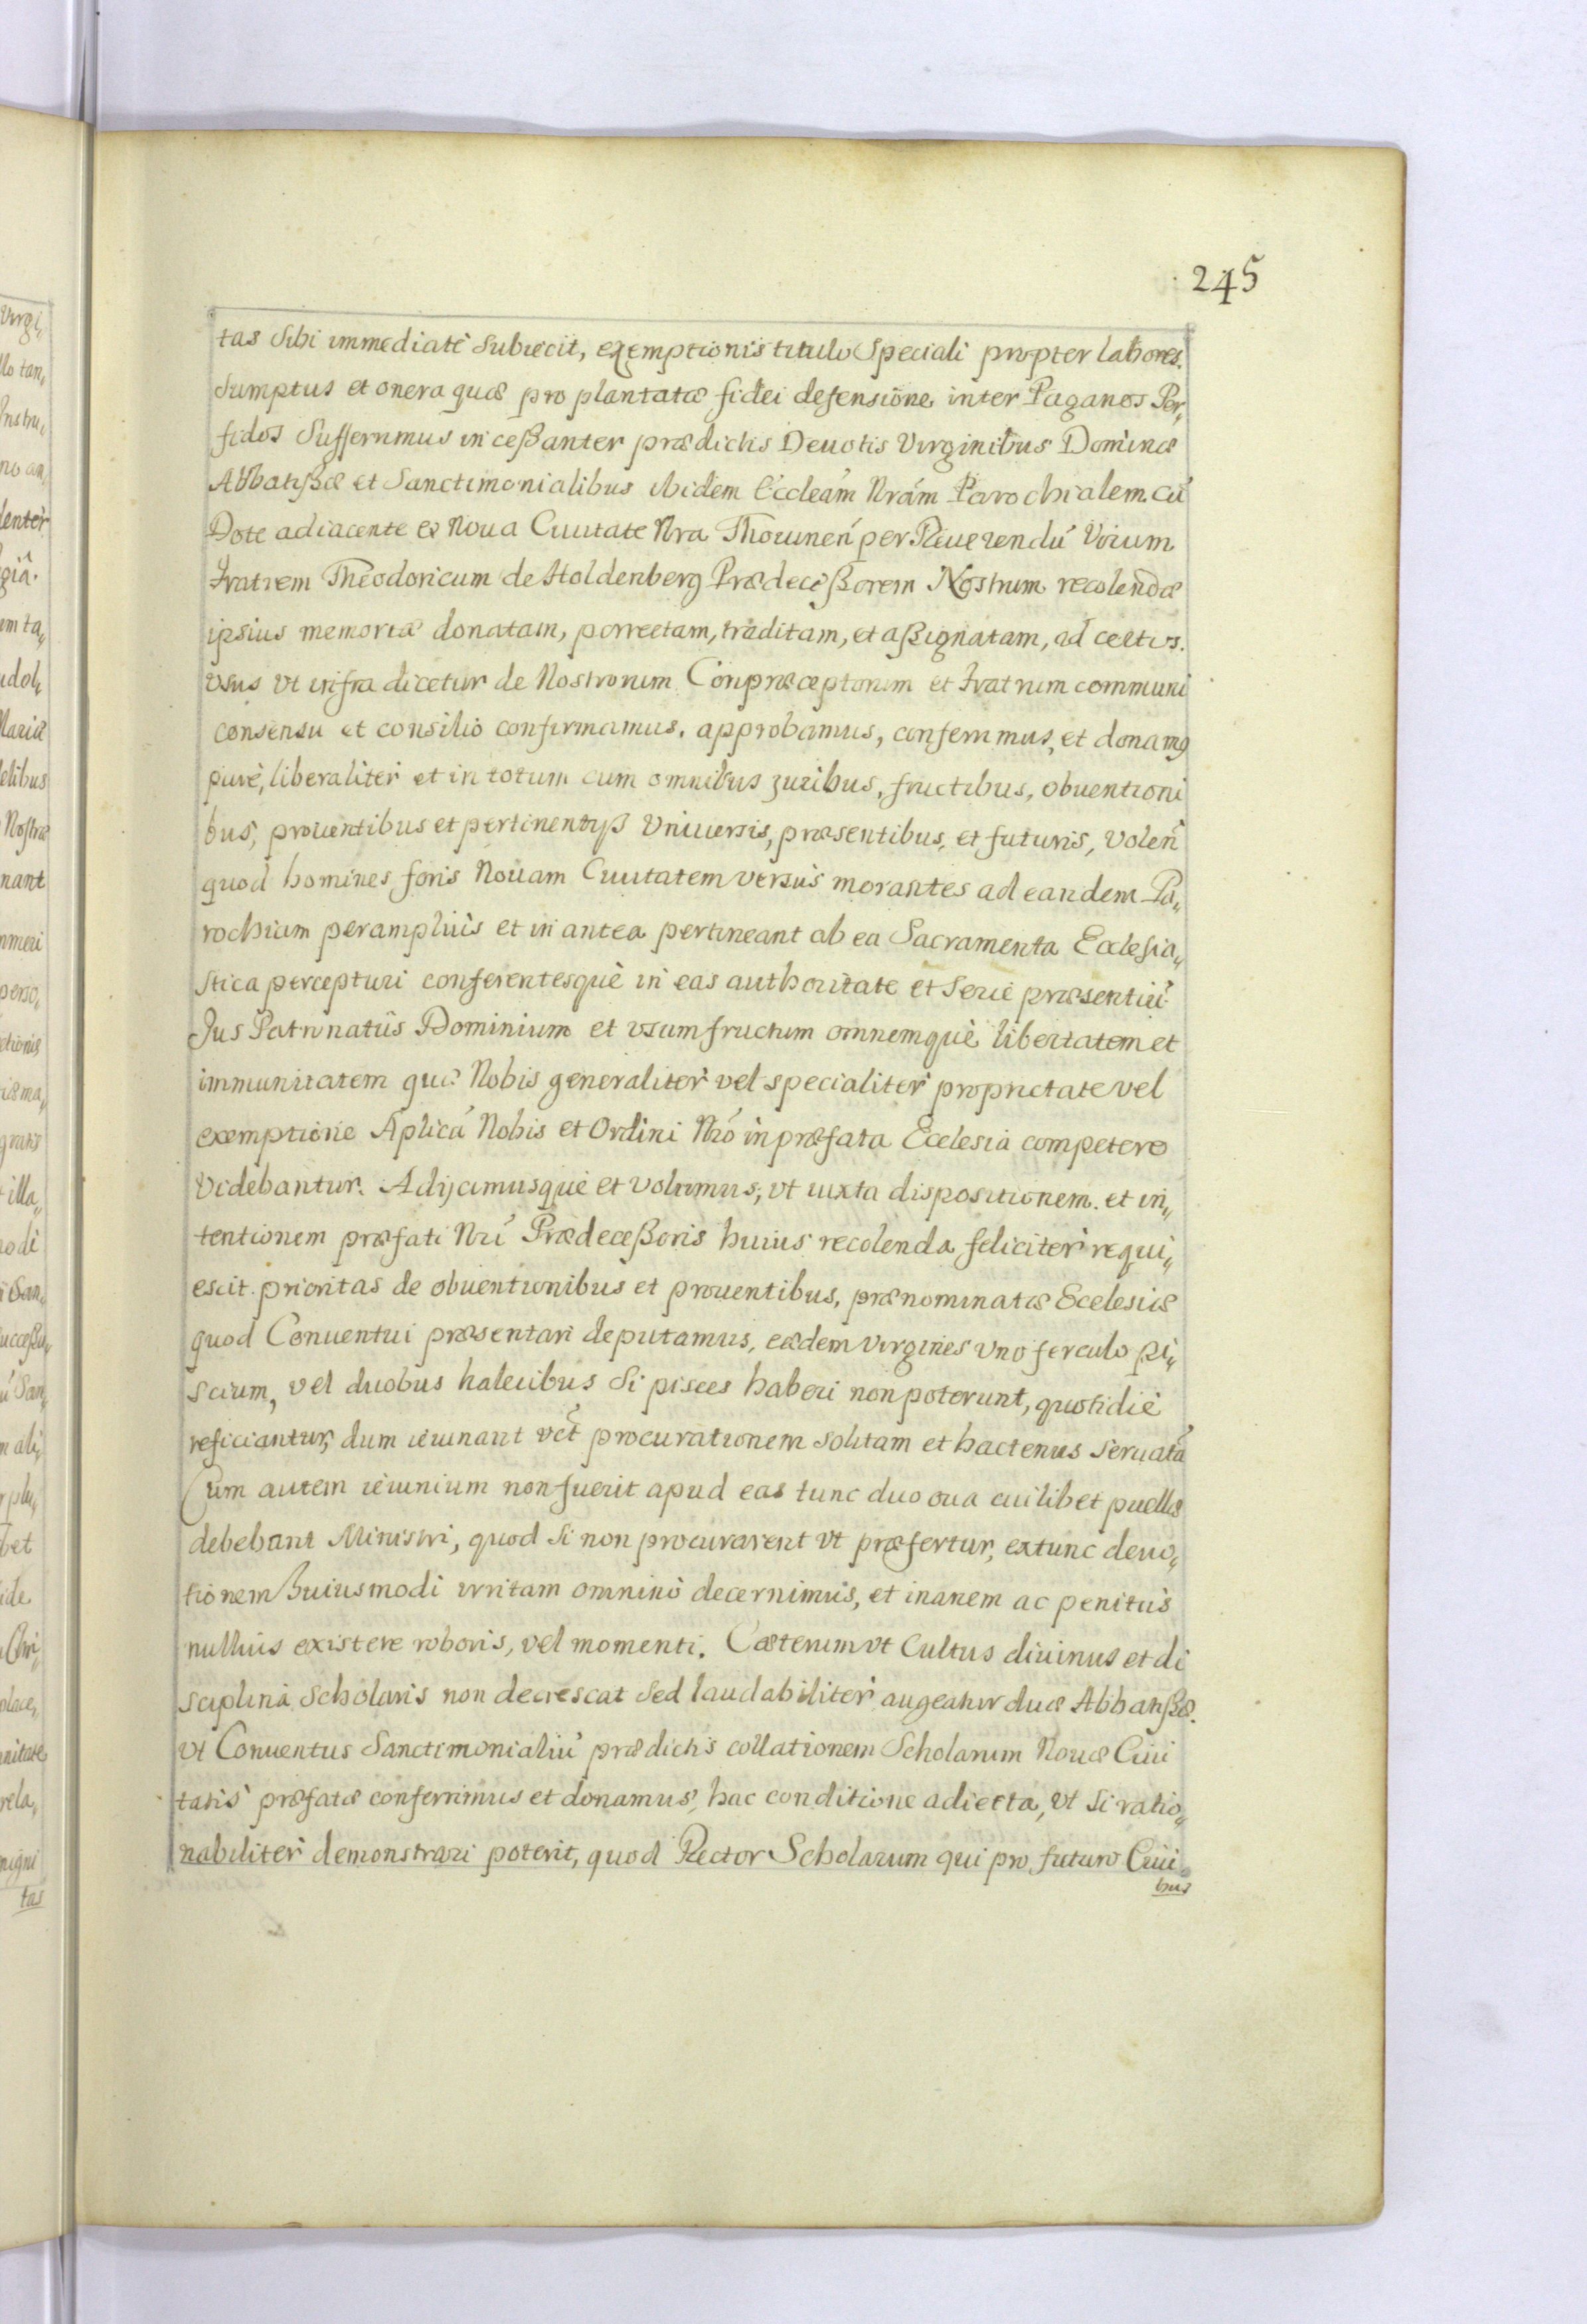 245
tas Sibi immediatè Subiecit, exemptionis titulo Speciali propter labores.
Sumptus et onera quæ pro plantatæ fidei defensione inter Paganos Per„
fidos Sufferimus inceßanter prædictis Deuotis Virginibus Dominæ
Abbatißæ et Sanctimonialibus ibidem Eccleám Nrám Parochialem cú
Dote adiacente ex Noua Ciuitate Nra Thorunen̄ per Reuerendú Virum
Fratrem Theodoricum de Holdenberg Prædeceßorem Nostrum recolendæ
ipsius memoriæ donatam, porrectam, traditam, et aßignatam, ad certos.
vsus vt infra dicetur de Nostrorum Conpræceptorum et Fratrum communi
consensu et consilio confirmamus. approbamus, conferimus, et donamꝯ
purè, liberaliter et in totum cum omnibus juribus, fructibus, obuentioni
bus, prouentibus et pertinentyß Vniuersis, præsentibus, et futuris, Volen̄
quod homines foris Nouam Ciuitatem versus morantes ad eandem Pa„
rochiam perampliùs et in antea pertineant ab ea Sacramenta Ecclesia„
stica percepturi conferentesquè in eas authoritate et Serie præsentiú
Jus Patronatûs Dominium et vsumfructum omnemquè libertatem et
immunitatem quæ Nobis generaliter vel specialiter proprietate vel
exemptione Aplicá Nobis et Ordini Nró in præfata Ecclesia competere
Videbantur. Adijcimusquè et volumus, vt iuxta dispositionem. et in„
tentionem præfati Nri Prædeceßoris huius recolenda feliciter requi„
escit prioritas de obuentionibus et prouentibus, prænominatæ Ecclesiæ
quod Conuentui præsentari deputamus, eædem virgines vno ferculo pi„
scium, vel duobus halecibus Si pisces haberi non poterunt, quotidiè
reficiantur, dum ieiunant vct̃ procurationem solitam et hactenus seruatã
Cum autem ieiunium non fuerit apud eas tunc duo oua cuilibet puellæ
debebunt Ministri, quod Si non procurarent vt præfertur, extunc deuo„
tionem huiusmodi irritam omninò decernimus, et inanem ac penitùs
nullius existere roboris, vel momenti. Cæterum vt Cultus diuinus et di
sciplina Scholaris non decrescat Sed laudabiliter augeatur duæ Abbatißæ.
vt Conuentus Sanctimonialiú prædictis collationem Scholarum Nouæ Ciui
tatis præfatæ conferrimus et donamus, hac conditione adiecta, vt Si ratio„
nabiliter demonstrari poterit, quod Rector Scholarum qui pro futuro Ciui„
bus